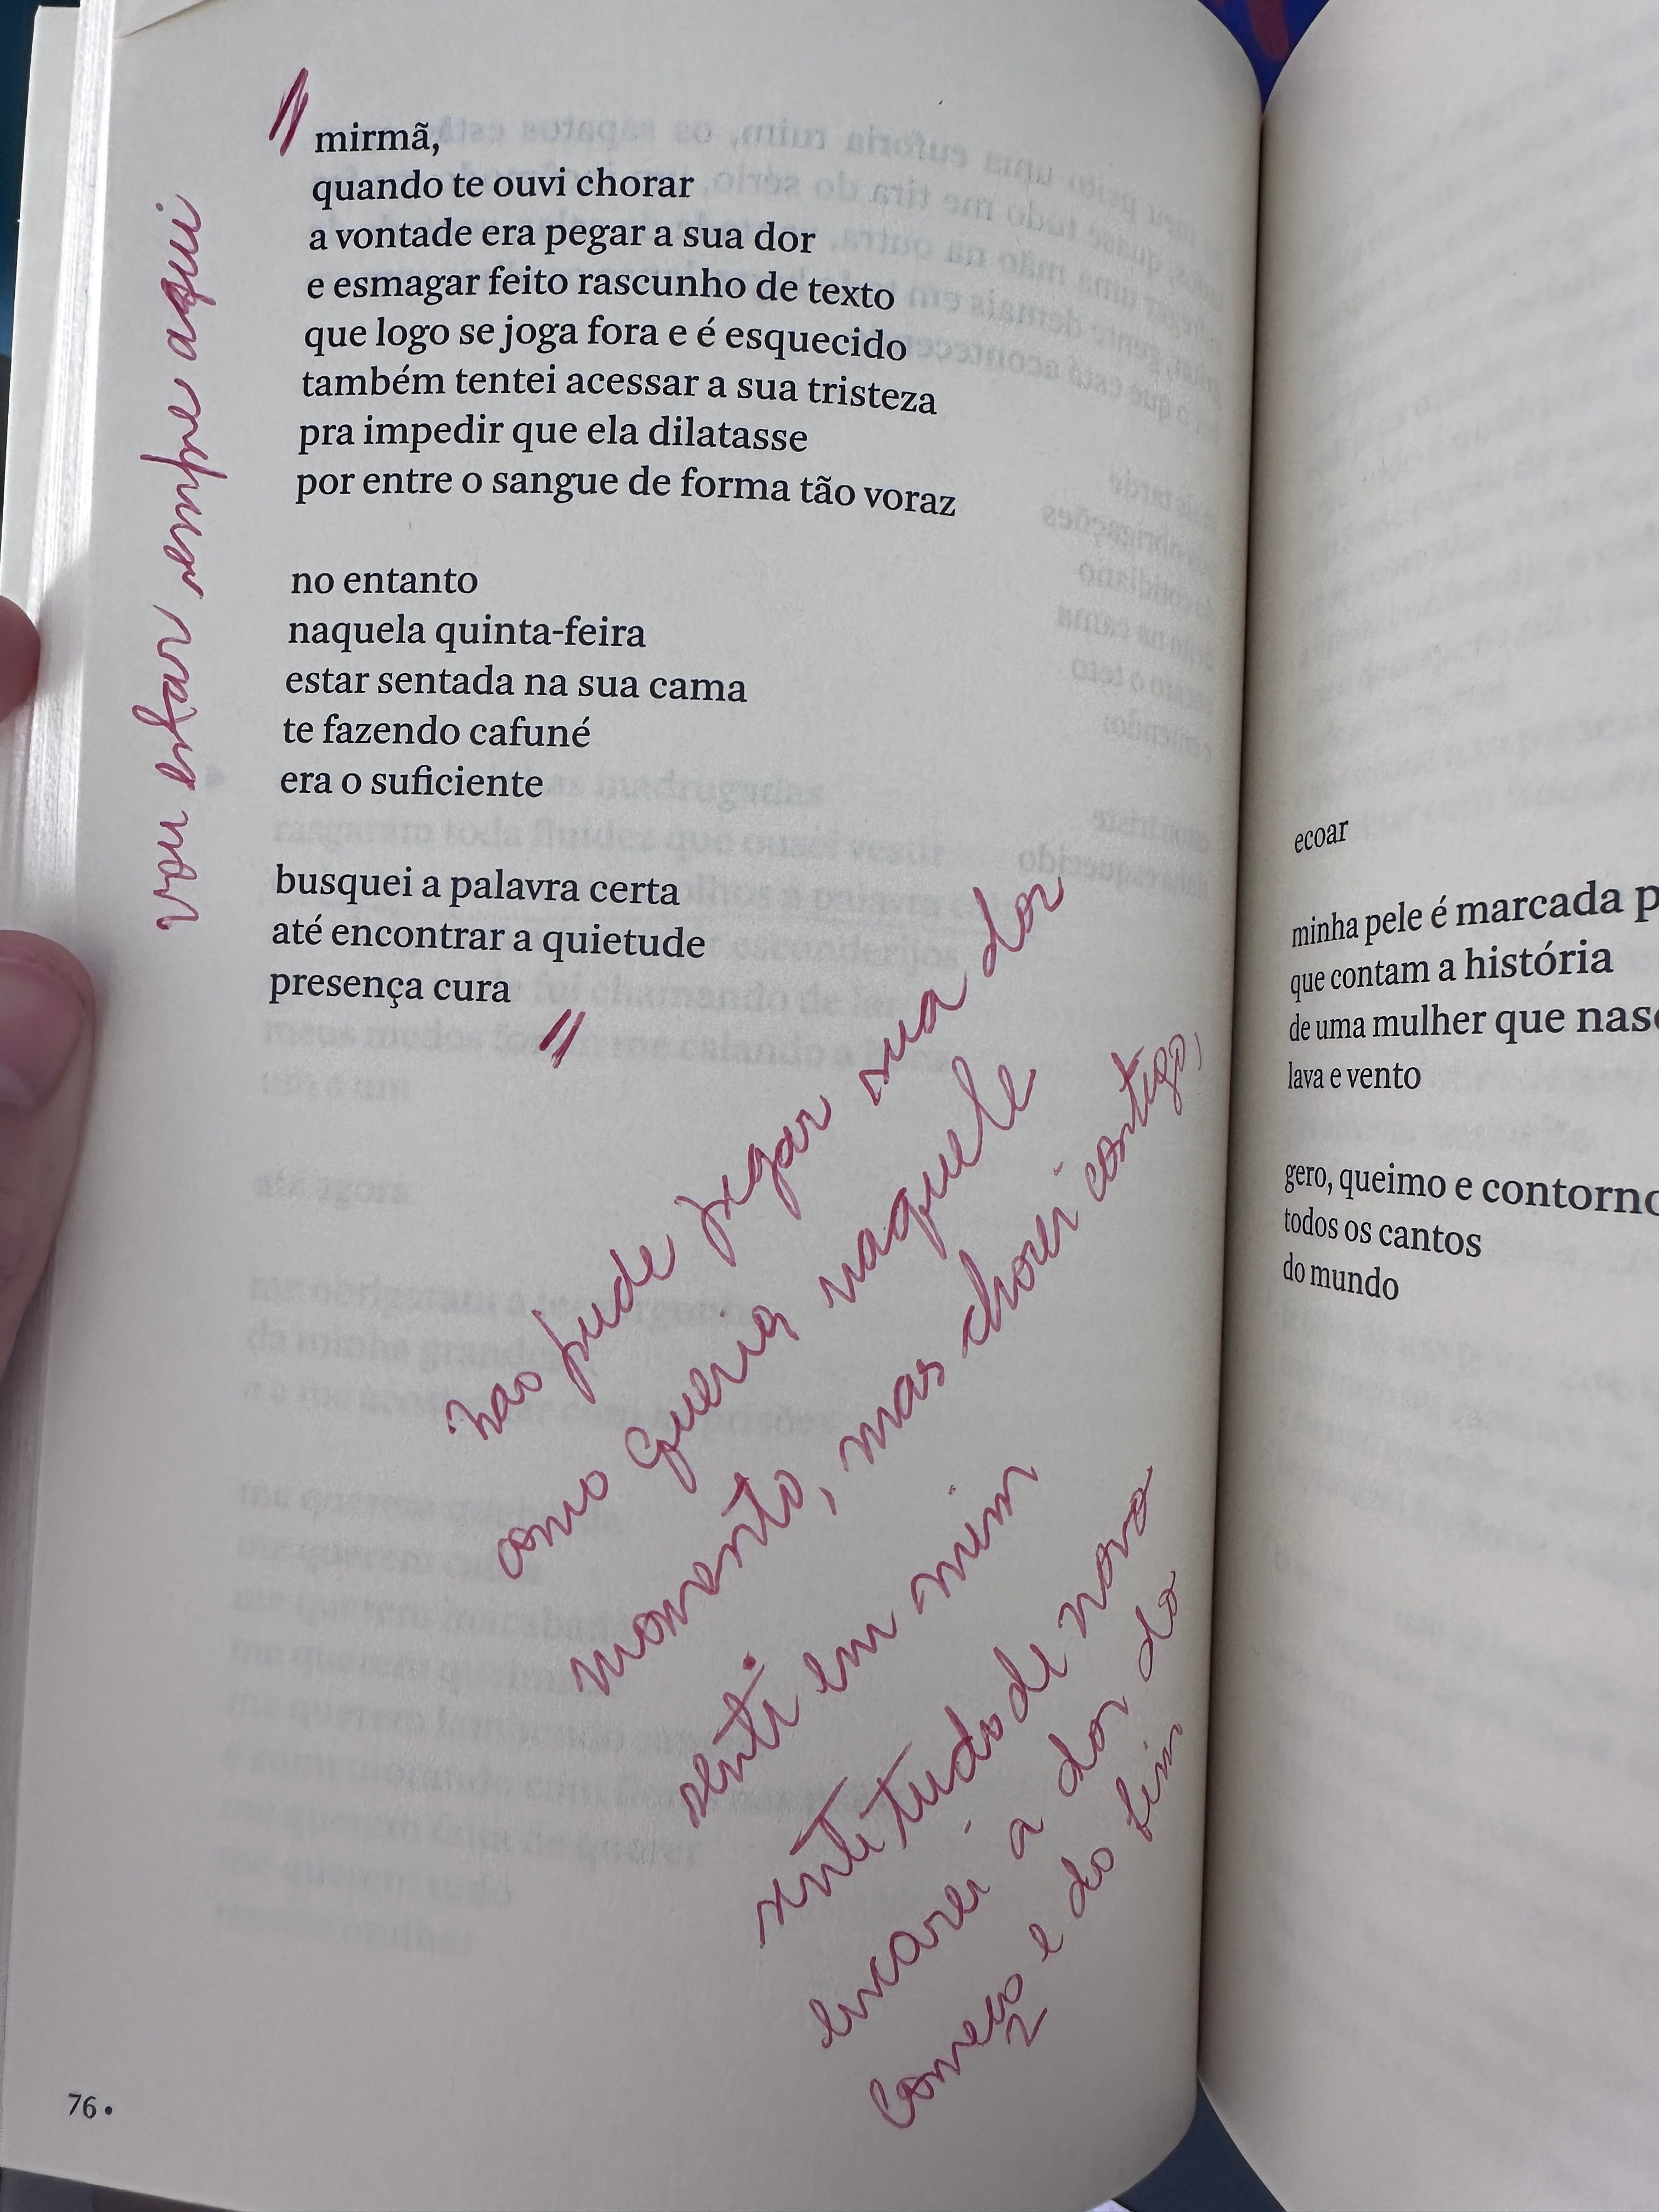 mirmã,
quando te ouvi chorar
a vontade era pegar a sua dor
e esmagar feito rascunho de texto
que logo se joga fora e é esquecido
também tentei acessar a sua tristeza
pra impedir que ela dilatasse
por entre o sangue de forma tão voraz
no entanto
naquela quinta-feira
estar sentada na sua cama
te fazendo cafuné
era o suficiente
busquei a palavra certa
até encontrar a quietude
presença cura
vou estar sempre aqui
não pude pegar sua dor
como queria naquele
momento, mas chorei contigo,
senti em mim
senti tudo de novo
encarei a dor do
começo e do fim
76 •
ecoar
minha pele é marcada p
que contam a história
de uma mulher que nas
lava e vento
gero, queimo e contorno
todos os cantos
do mundo